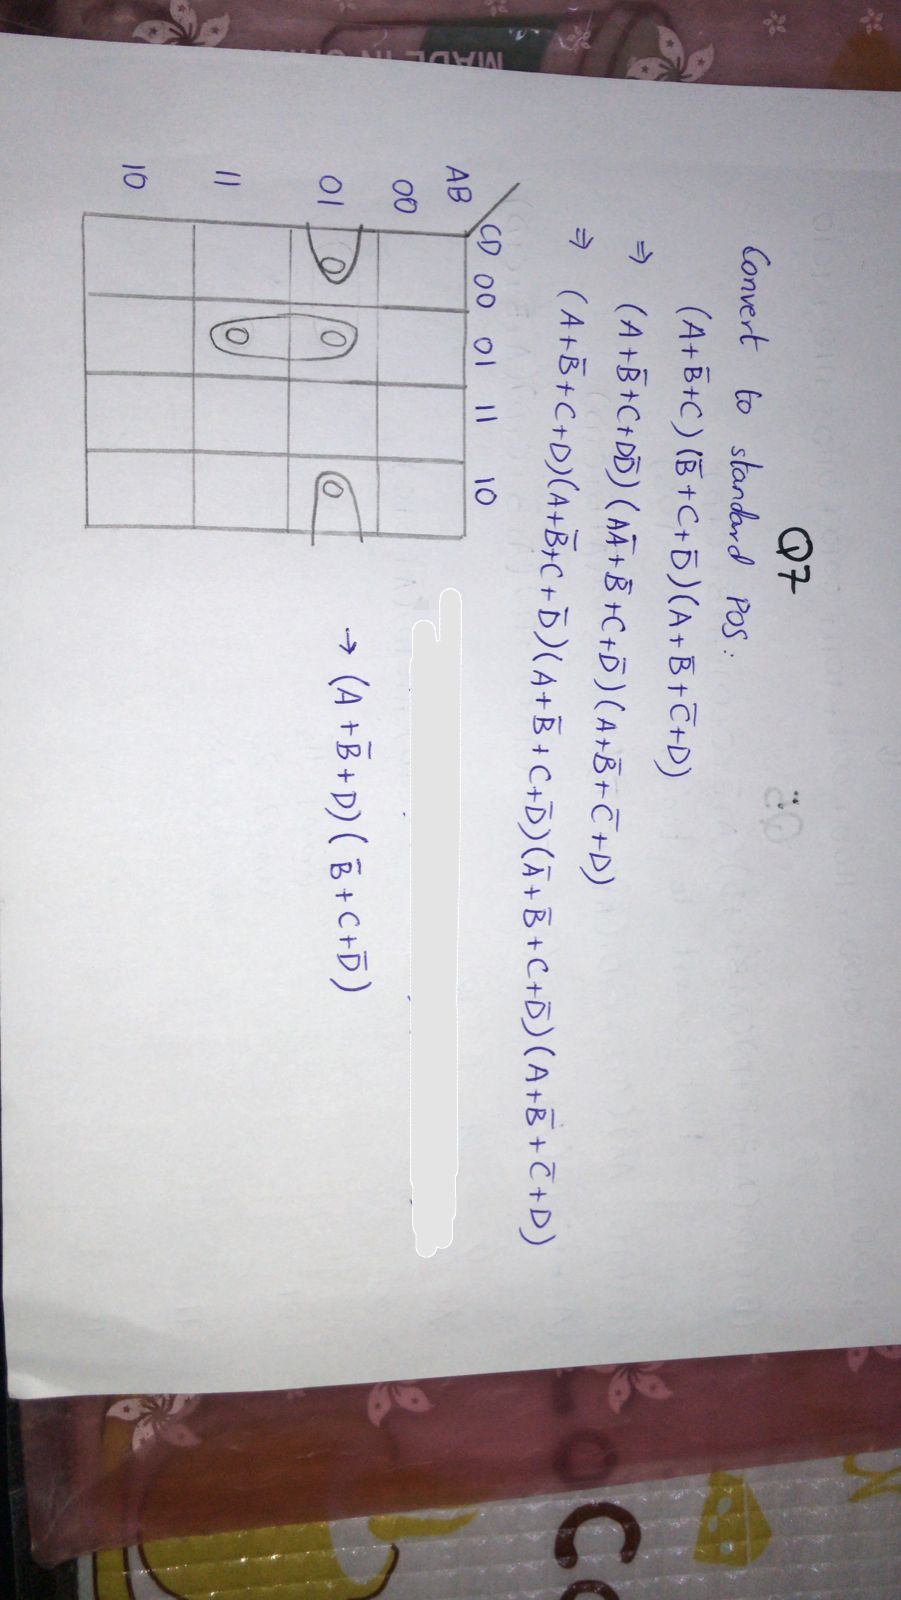 Q7
Convert to standard POS:
(A+B̄+C)(B̄+C+D̄)(A+B̄+C̄+D)
⇒ (A+B̄+C+DD̄)(AĀ+B̄+C+D̄)(A+B̄+C̄+D)
⇒ (A+B̄+C+D)(A+B̄+C+D̄)(A+B̄+C+D̄)(Ā+B̄+C+D̄)(A+B̄+C̄+D)
AB CD 00 01 11 10
00
01 0 0 0
11 0
10
→ (A+B̄+D)(B̄+C+D̄)
MADE IN